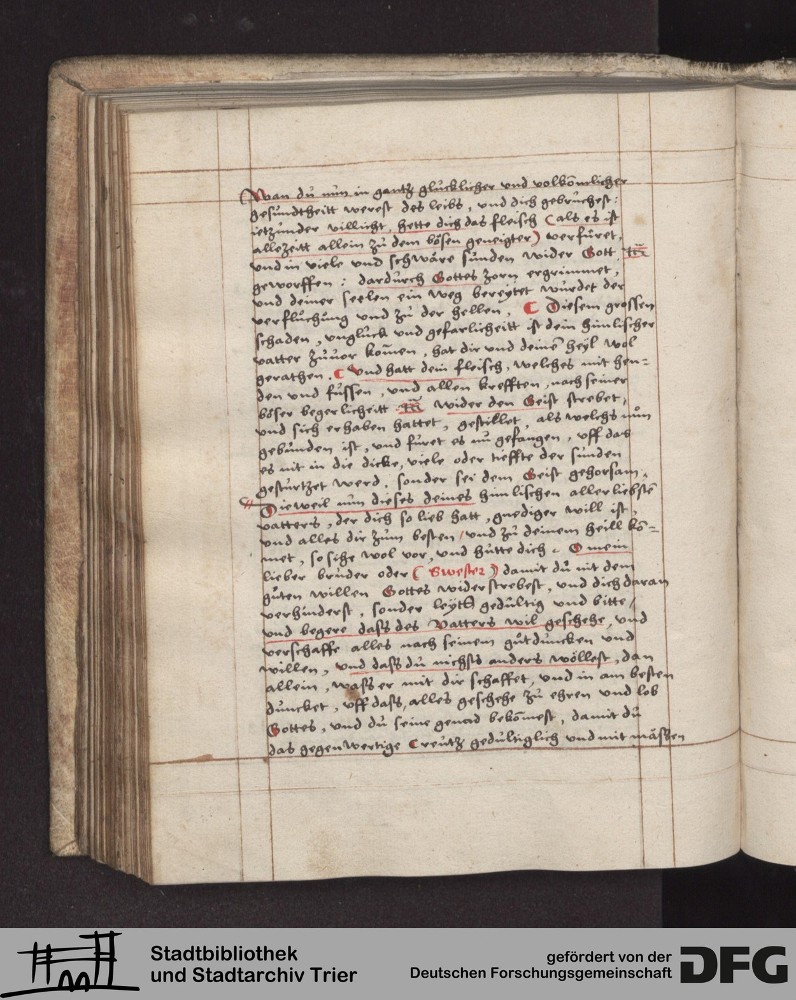 Wan du nun in gantz glücklicher und volkom̄licher
gesundtheitt werest des leibs, und dich gebruchest:
ietzunder villicht, hette dich das fleisch (als es ist
allezeitt allein zu dem bösen geneigter) verfüret,
und in viele und schwäre sünden wider Gott
geworffen: dardurch Gottes zorn ergrimmet,
und deiner seelen ein weg bereytet würdet der
verfluchung und zu der hellen. Diesem grossen
schaden, unglück und gefarlicheitt ist dein himlischer
vatter zuvor kom̄en, hat dir und deinē heyl wol
gerathen. Und hatt dein fleisch, welches mit hen=
den und füssen, und allen krefften, nach seiner
böser begerlicheitt wider den Geist strebet,
und sich erhaben hattet, gestillet, als welchs nun
gebunden ist, und füret es nu gefangen, uff das
es nit in die dicke, viele oder tieffte der sünden
gesturtzet werd, sonder sei dem Geist gehorsam.
Dieweil nun dieses deines himlischen allerliebstē
vatters, der dich so lieb hatt, gnediger will ist,
und alles dir zum besten, und zu deinem heill kō=
met, so sihe wol vor, und hütte dich. O mein
lieber bruder oder (Swester) damit du nit dem
guten willen Gottes widerstrebest, und dich daran
verhinderst, sonder leyth gedültig und bitte,
und begere dass des Vatters wil geschehe, und
verschaffe alles nach seinem gutduncken und
willen, und dass du nichsts anders wöllest, dan
allein, wass er mit dir schaffet, und in am besten
duncket, uff dass, alles geschehe zu ehren und lob
Gottes, und du seine genad bekōmest, damit du
das gegenwertige Creutz gedültiglich und mit mässen
Stadtbibliothek
und Stadtarchiv Trier
gefördert von der
Deutschen Forschungsgemeinschaft
DFG